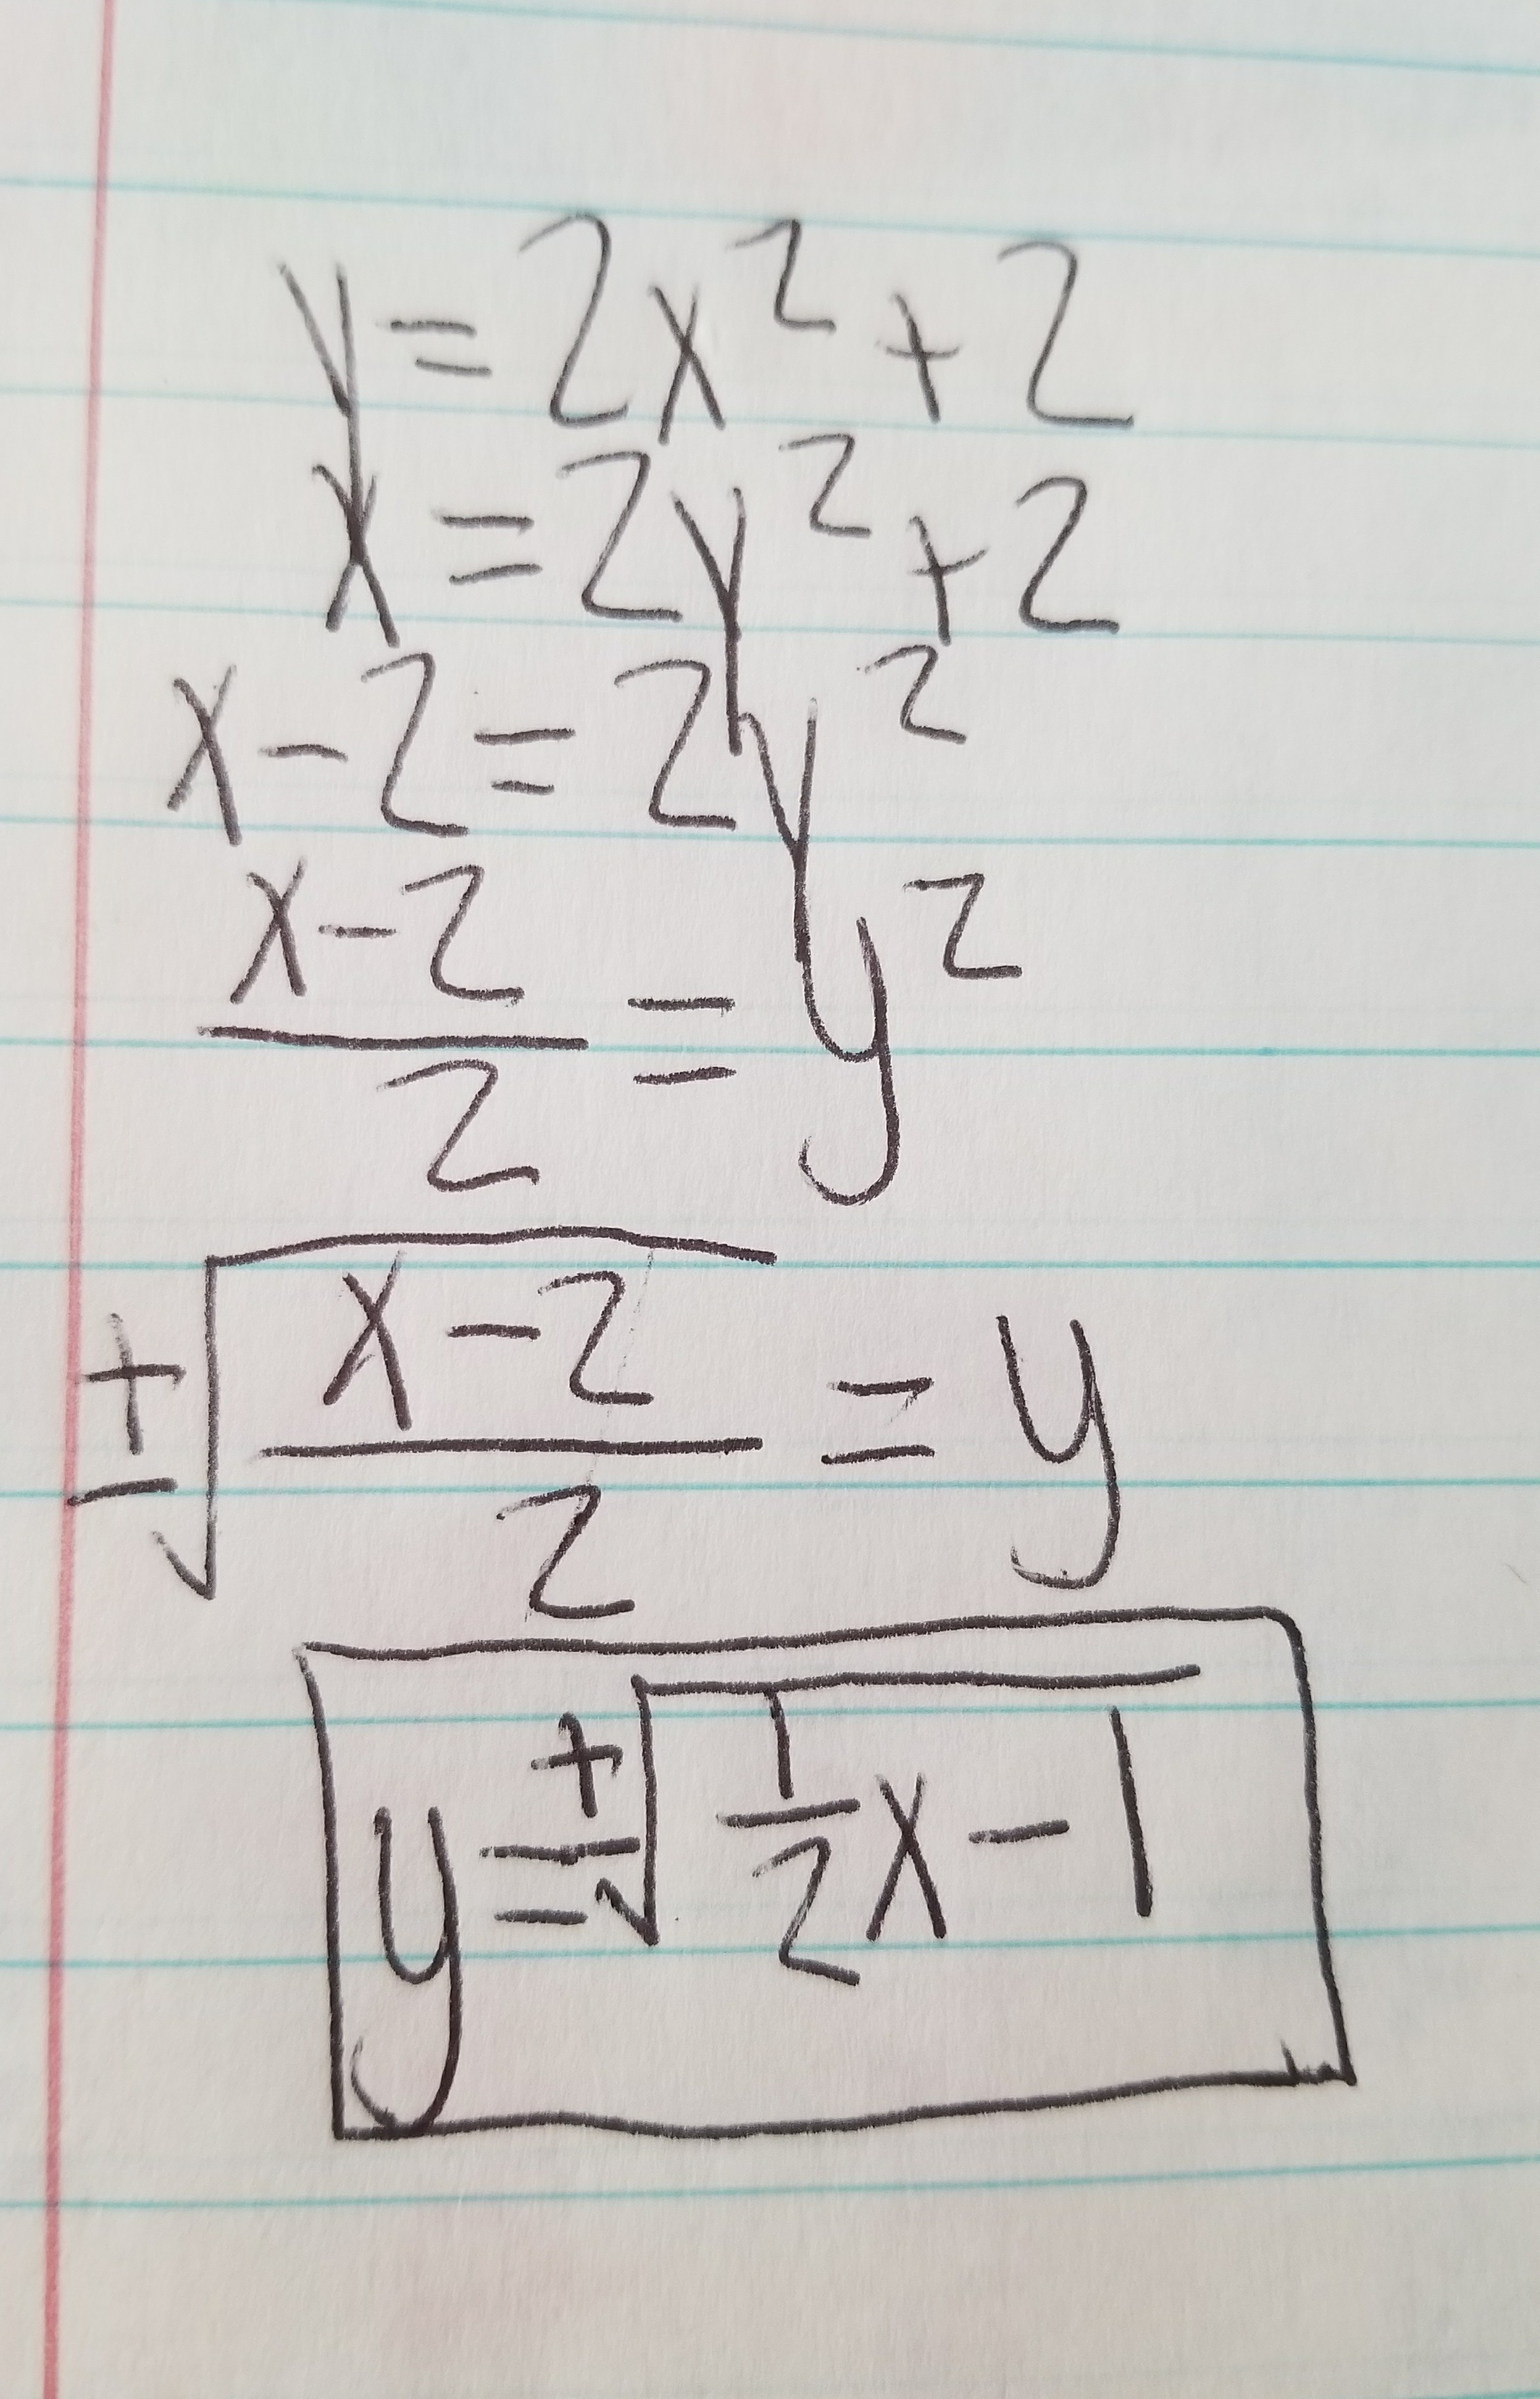 y = 2x² + 2
x = 2y² + 2
x - 2 = 2y²
(x - 2)/2 = y²
±√((x - 2)/2) = y
y = ±√(1/2 x - 1)